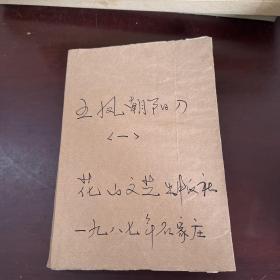 五凤朝阳刀
<一>
花山文艺出版社
一九八七年石家庄